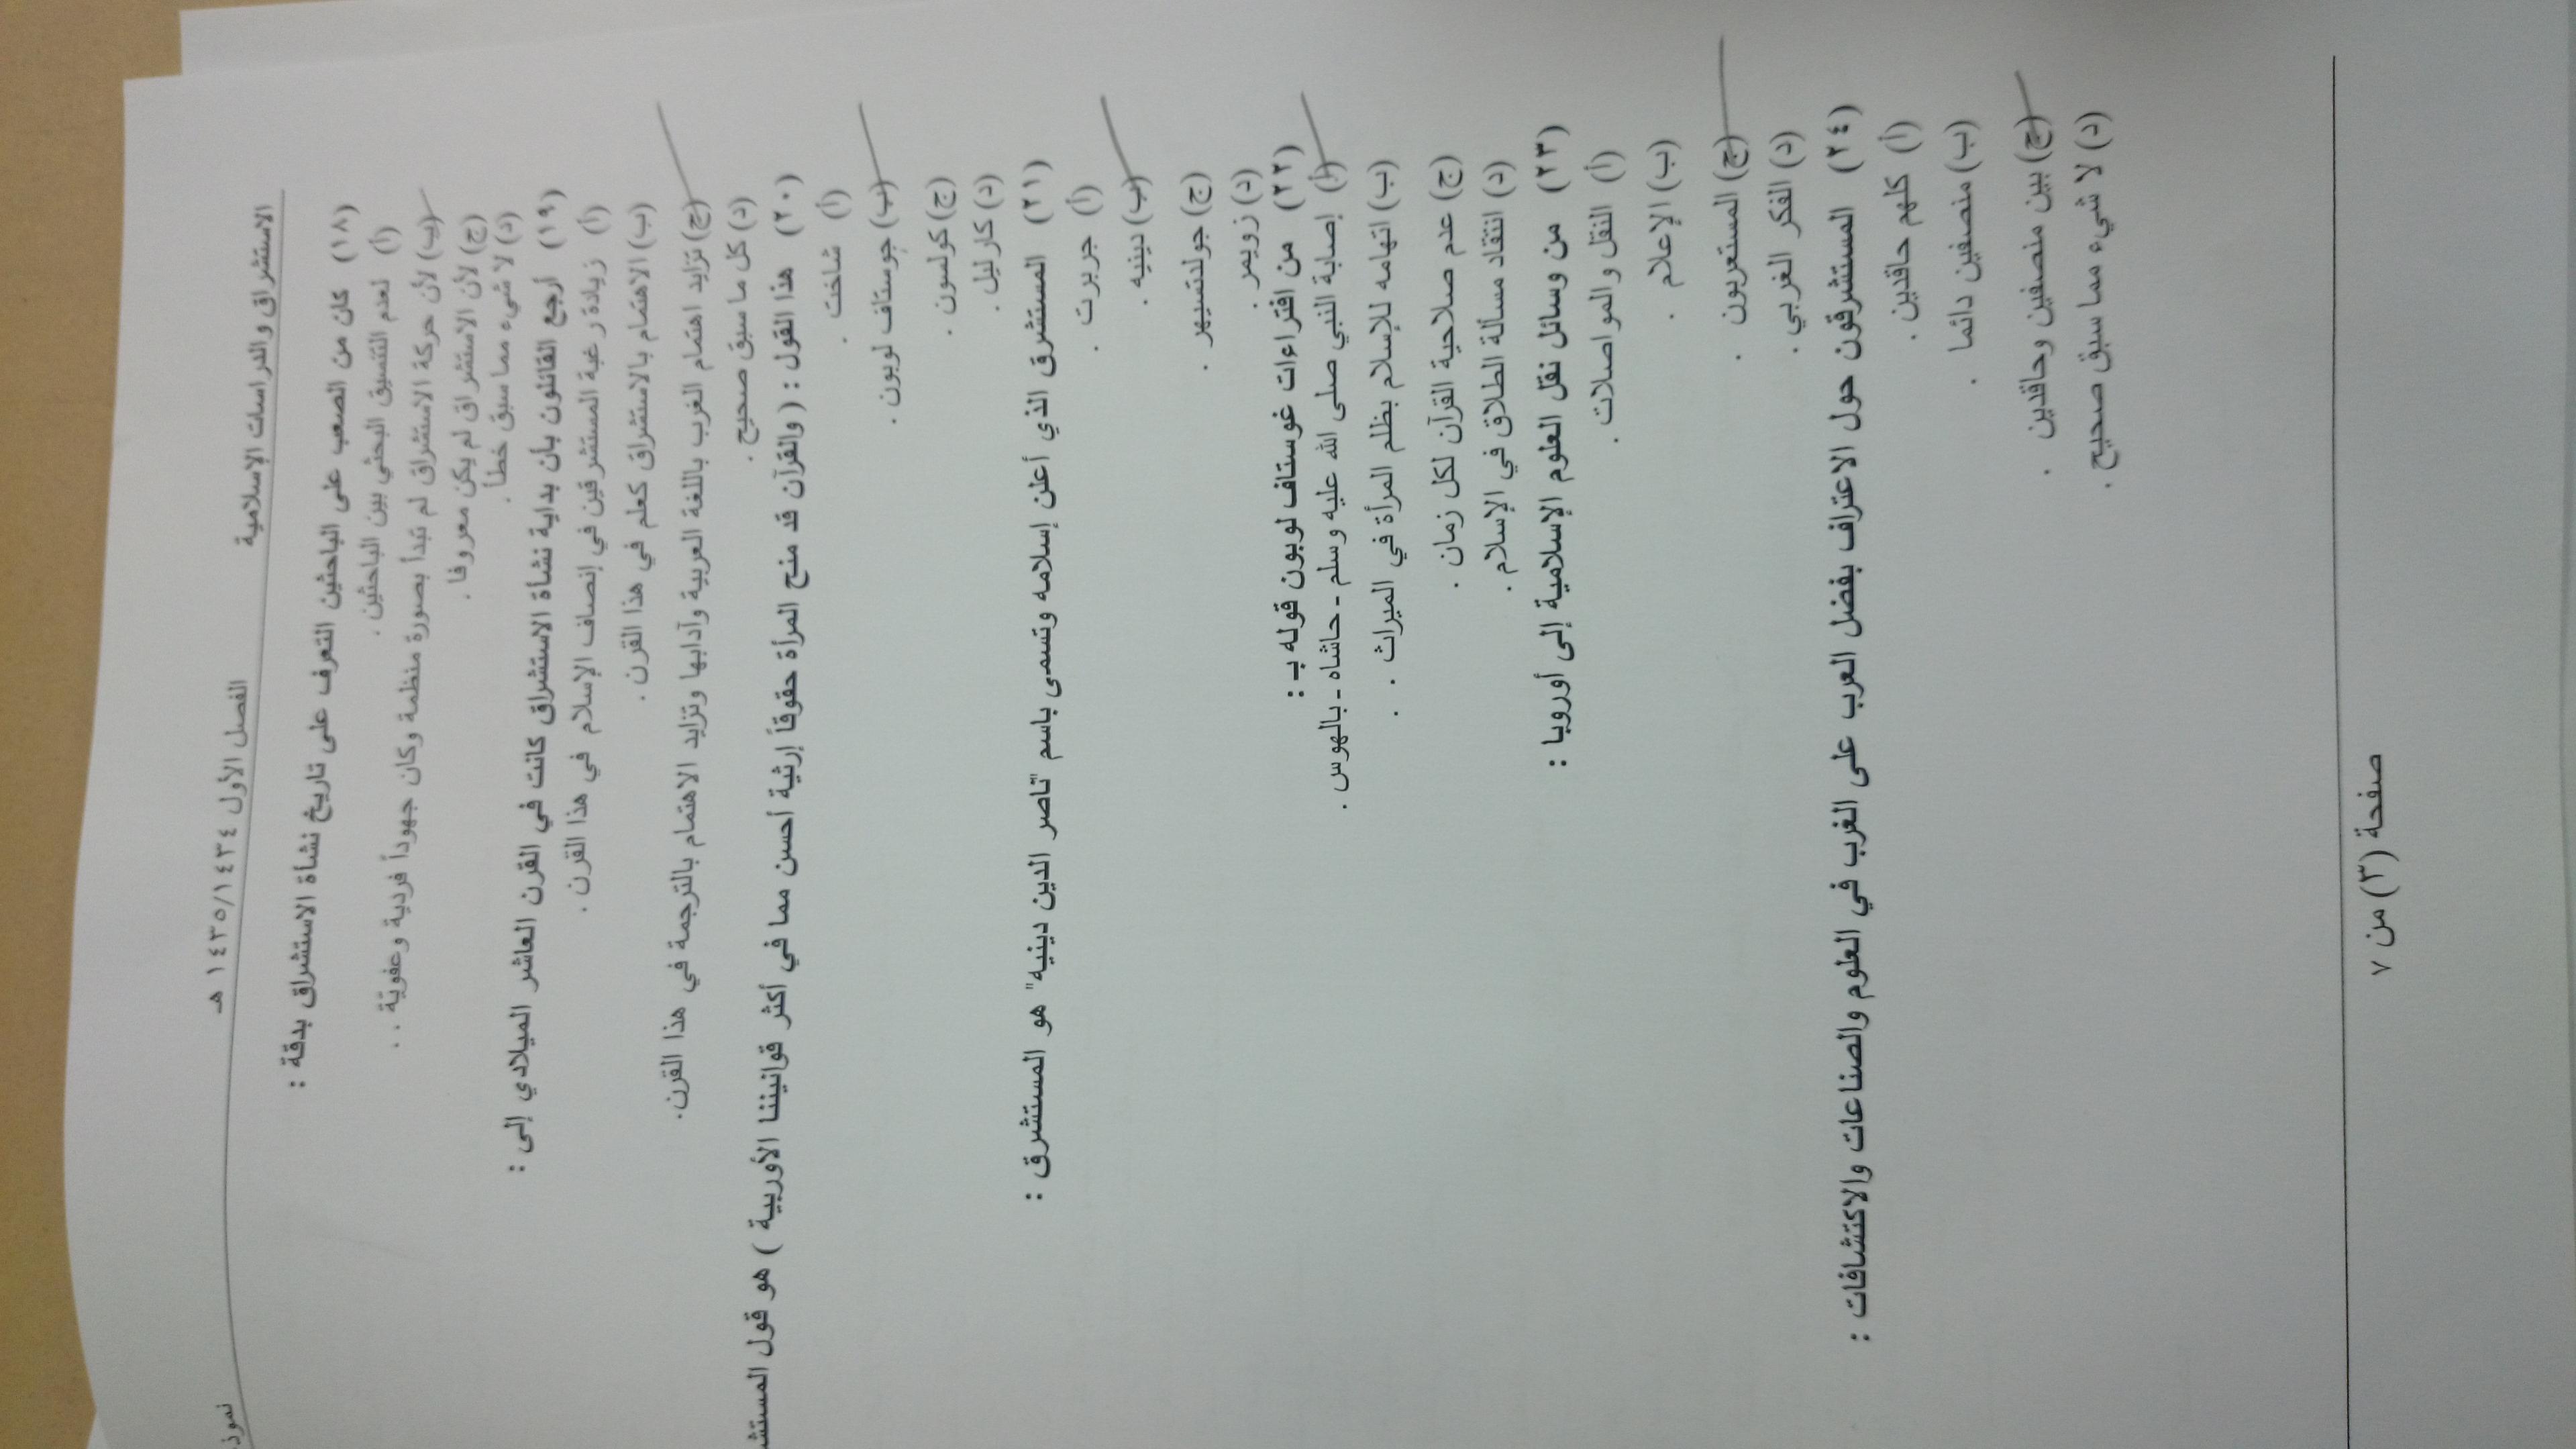 الاستشراق والدراسات الإسلامية الفصل الأول ١٤٣٤/١٤٣٥ هـ
(١٨) كان من الصعب على الباحثين التعرف على تاريخ نشأة الاستشراق بدقة :
(أ) لعدم التنسيق البحثي بين الباحثين .
(ب) لأن حركة الاستشراق لم تبدأ بصورة منظمة وكان جهوداً فردية وعفوية . .
(ج) لأن الاستشراق لم يكن معروفا .
(د) لا شيء مما سبق خطأ .
(١٩) أرجع القائلون بأن بداية نشأة الاستشراق كانت في القرن العاشر الميلادي إلى :
(أ) زيادة رغبة المستشرقين في إنصاف الإسلام في هذا القرن .
(ب) الاهتمام بالاستشراق كعلم في هذا القرن .
(ج) تزايد اهتمام الغرب باللغة العربية وآدابها وتزايد الاهتمام بالترجمة في هذا القرن.
(د) كل ما سبق صحيح .
(٢٠) هذا القول : ( والقرآن قد منح المرأة حقوقاً إرثية أحسن مما في أكثر قوانيننا الأوربية ) هو قول
(أ) شاخت .
(ب) جوستاف لوبون .
(ج) كولسون .
(د) كارليل .
(٢١) المستشرق الذي أعلن إسلامه وتسمى باسم "ناصر الدين دينيه" هو المستشرق :
(أ) جريرت .
(ب) دينيه .
(ج) جولدتسيهر .
(د) زويمر .
(٢٢) من افتراءات غوستاف لوبون قوله بـ :
(أ) إصابة النبي صلى الله عليه وسلم - حاشاه - بالهوس .
(ب) اتهامه للإسلام بظلم المرأة في الميراث . .
(ج) عدم صلاحية القرآن لكل زمان .
(د) انتقاد مسألة الطلاق في الإسلام .
(٢٣) من وسائل نقل العلوم الإسلامية إلى أوروبا :
(أ) النقل والمواصلات .
(ب) الإعلام .
(ج) المستعربون .
(د) الفكر الغربي .
(٢٤) المستشرقون حول الاعتراف بفضل العرب على الغرب في العلوم والصناعات والاكتشافات :
(أ) كلهم حاقدين .
(ب) منصفين دائما .
(ج) بين منصفين وحاقدين .
(د) لا شيء مما سبق صحيح .
صفحة (٣) من ٧